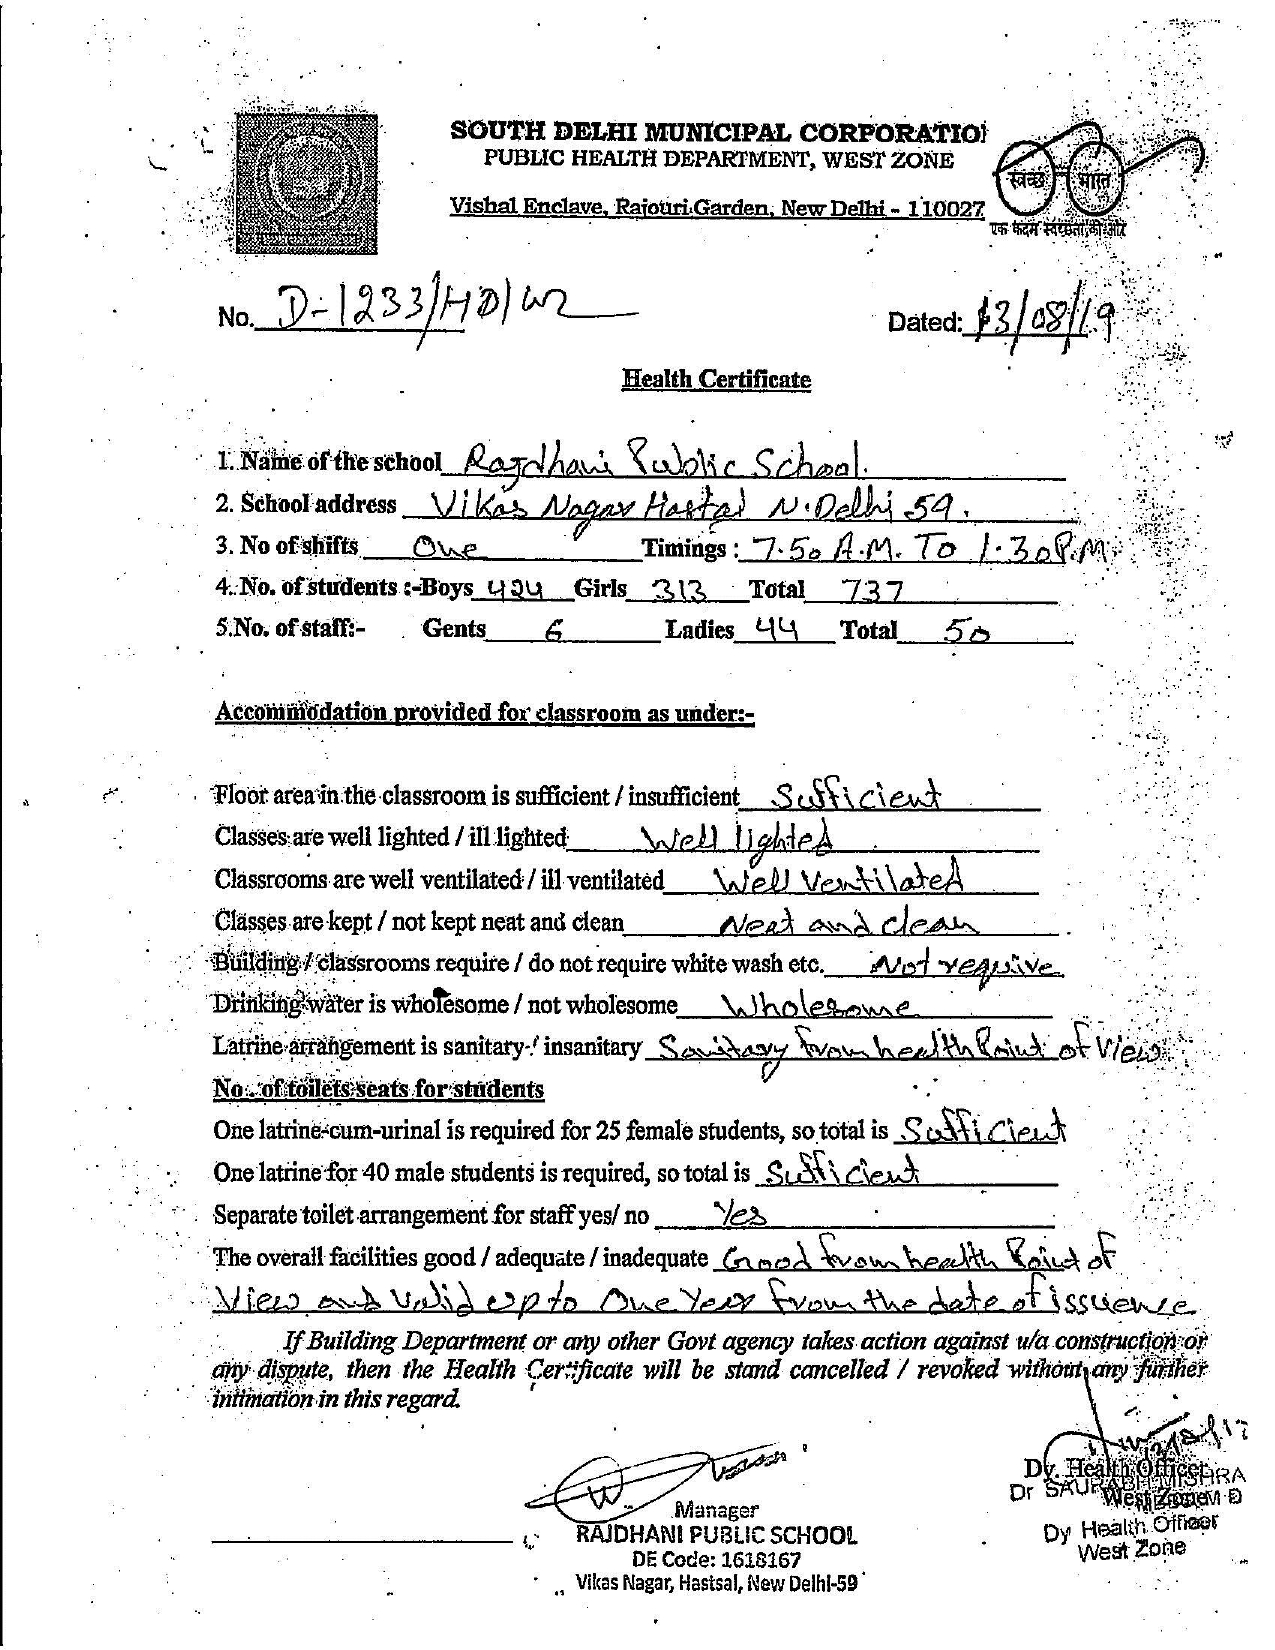 SOUTH DELHI MUNICIPAL CORPORATIO
PUBLIC HEALTH DEPARTMENT, WEST ZONE
Vishal Enclave, Rajouri Garden, New Delhi - 110027
स्वच्छ भारत
एक कदम स्वच्छता की ओर
No. D-1233/HO/WZ
Dated: 13/08/19
Health Certificate
1. Name of the school Rajdhani Public School.
2. School address Vikas Nagar Hastsal N.Delhi 59.
3. No of shifts One Timings : 7.50 A.M. TO 1.30 P.M.
4. No. of students :-Boys 424 Girls 313 Total 737
5.No. of staff:- Gents 6 Ladies 44 Total 50
Accommodation provided for classroom as under:-
Floor area in the classroom is sufficient / insufficient Sufficient
Classes are well lighted / ill lighted Well lighted
Classrooms are well ventilated / ill ventilated Well Ventilated
Classes are kept / not kept neat and clean Neat and clean
Building / classrooms require / do not require white wash etc. Not require
Drinking water is wholesome / not wholesome Wholesome
Latrine arrangement is sanitary / insanitary Sanitary from health Point of View
No. of toilets seats for students
One latrine-cum-urinal is required for 25 female students, so total is Sufficient
One latrine for 40 male students is required, so total is Sufficient
Separate toilet arrangement for staff yes/ no Yes
The overall facilities good / adequate / inadequate Good from health Point of
View and Valid up to One Year from the date of issuence
If Building Department or any other Govt agency takes action against u/a construction or
any dispute, then the Health Certificate will be stand cancelled / revoked without any further
intimation in this regard.
Manager
RAJDHANI PUBLIC SCHOOL
DE Code: 1618167
Vikas Nagar, Hastsal, New Delhi-59
Dy. Health Officer
West Zone
Dr SAURABH MISHRA
Dy Health Officer
West Zone